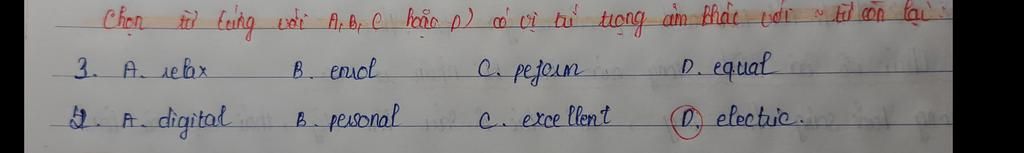 Chọn từ (ứng với A, B, C hoặc D) có vị trí trọng âm khác với ~ từ còn lại:
3. A. relax B. enrol C. peform D. equal
4. A. digital B. personal C. excellent D. electric.